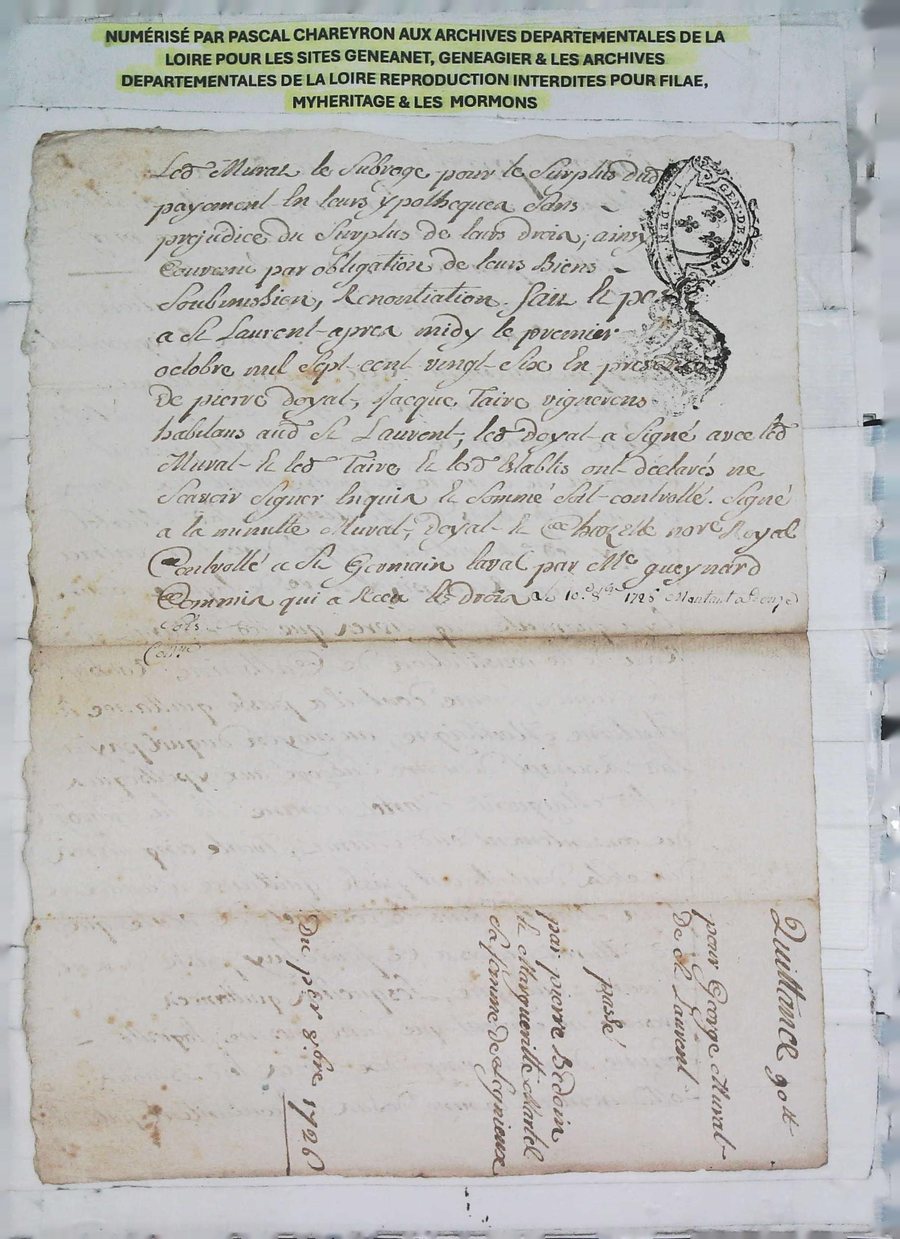 NUMÉRISÉ PAR PASCAL CHAREYRON AUX ARCHIVES DEPARTEMENTALES DE LA
LOIRE POUR LES SITES GENEANET, GENEAGIER & LES ARCHIVES
DEPARTEMENTALES DE LA LOIRE REPRODUCTION INTERDITES POUR FILAE,
MYHERITAGE & LES MORMONS
Led Murat le Subroge pour le Surplus dud
payement En leurs ypotheques Sans
prejudice du Surplus de leurs drois, ainsy
Convenu par obligation de leurs Biens
Soubmission, Renontiation. fait & passé
a St Laurent apres midy le premier
octobre mil Sept cent vingt Six En presence
De pierre Doyat, Jacque Taire vignerons
habitans aud St Laurent, led Doyat a Signé avec led
Murat & led Taire & lesd Establis ont declarés ne
Scavoir Signer Enquis & Sommé Soit controllé. Signé
a la minutte Murat, Doyat & Chazelle nore Royal
Controllé a St Germain laval par Me gueynard
Commis qui a Receu les Drois le 10e 8bre 1726
GEN. DE LYON
Quittance 90tt
pour George Murat
De St Laurent
passé
par pierre Bedoin
& Margueritte Martel
sa femme de
Du per 8.bre 1726